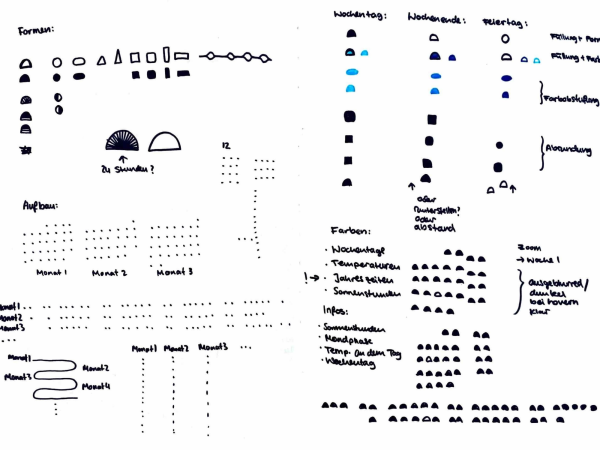 Formen:
zu Stunden?
12
Aufbau:
Monat 1
Monat 2
Monat 3
Monat1
Monat2
Monat3
...
Monat1
Monat2
Monat3
Monat4
Monat1
Monat2
Monat3
...
Wochentag:
Wochenende:
Feiertag:
Füllung + Form
Füllung +
Farbabstufung
Abrundung
oder
runterstellen?
oder
abstand
Farben:
· Wochentage
· Temperaturen
! → · Jahreszeiten
· Sonnenstunden
Zoom
→ Woche 1
ausgeblurred/
dunkel
bei hovern
klar
Infos:
· Sonnenstunden
· Mondphase
· Temp. an dem Tag
· Wochentag